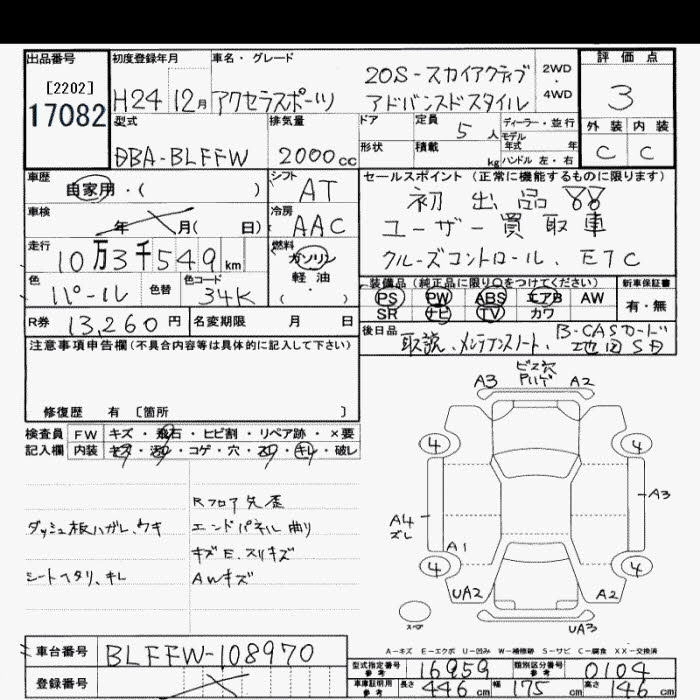 出品番号
[2202]
17082
初度登録年月
H24 12月
車名・グレード
アクセラスポーツ
20S-スカイアクティブ
アドバンスドスタイル
2WD・4WD
評価点
3
外装 内装
C C
型式
DBA-BLFFW
排気量
2000cc
ドア
形状
定員 5人
積載 kg
ディーラー・並行
モデル年式 年
ハンドル 左・右
車歴
自家用・( )
シフト
AT
車検
年 月( 日)
冷房
AAC
走行
10万3千549km
燃料
ガソリン
軽油
( )
色
パール
色替
色コード
34K
R券 13,260円
名変期限 月 日
セールスポイント(正常に機能するものに限ります)
初出品
ユーザー買取車
クルーズコントロール、ETC
装備品(純正品に限り〇をつけてください)
PS PW ABS エアB AW
SR ナビ TV カワ
新車保証書
有・無
後日品
取説、メンテナンスノート、B-CASカード
地図SD
注意事項申告欄(不具合内容等は具体的に記入して下さい)
修復歴 有 [箇所 ]
検査員記入欄
FW キズ・飛石・ヒビ割・リペア跡・×要
内装 キズ・汚レ・コゲ・穴・スレ・キレ・破レ
Rフロア矢歪
ダッシュ板ハガレ、ウキ
エンドパネル曲り
キズE、スリキズ
シートヘタリ、キレ
AWキズ
ビス穴
Pハゲ
A3 A2
4 4
A3
A4
ズレ
A1
4 4
UA2 A2
UA3
スペア
A-キズ E-エクボ U-凹み W-補修跡 S-サビ C-腐食 XX-交換済
車台番号 BLFFW-108970
登録番号
型式指定番号 参考 16959
類別区分番号 参考 0104
車庫証明用 参考 長さ 446cm 幅 175cm 高さ 146cm